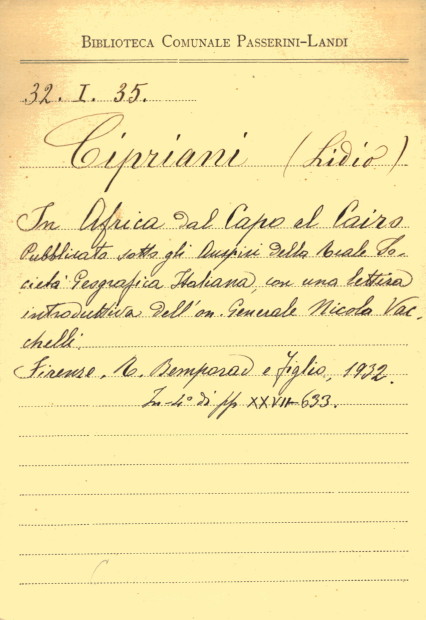 BIBLIOTECA COMUNALE PASSERINI-LANDI
32. I. 35.
Cipriani (Lidio)
In Africa dal Capo al Cairo
Pubblicato sotto gli Auspici della Reale So-
cietà Geografica Italiana, con una lettera
introduttiva dell'on. Generale Nicola Vac-
chelli.
Firenze, R. Bemporad e figlio, 1932.
In-4° di pp XXVII-633.